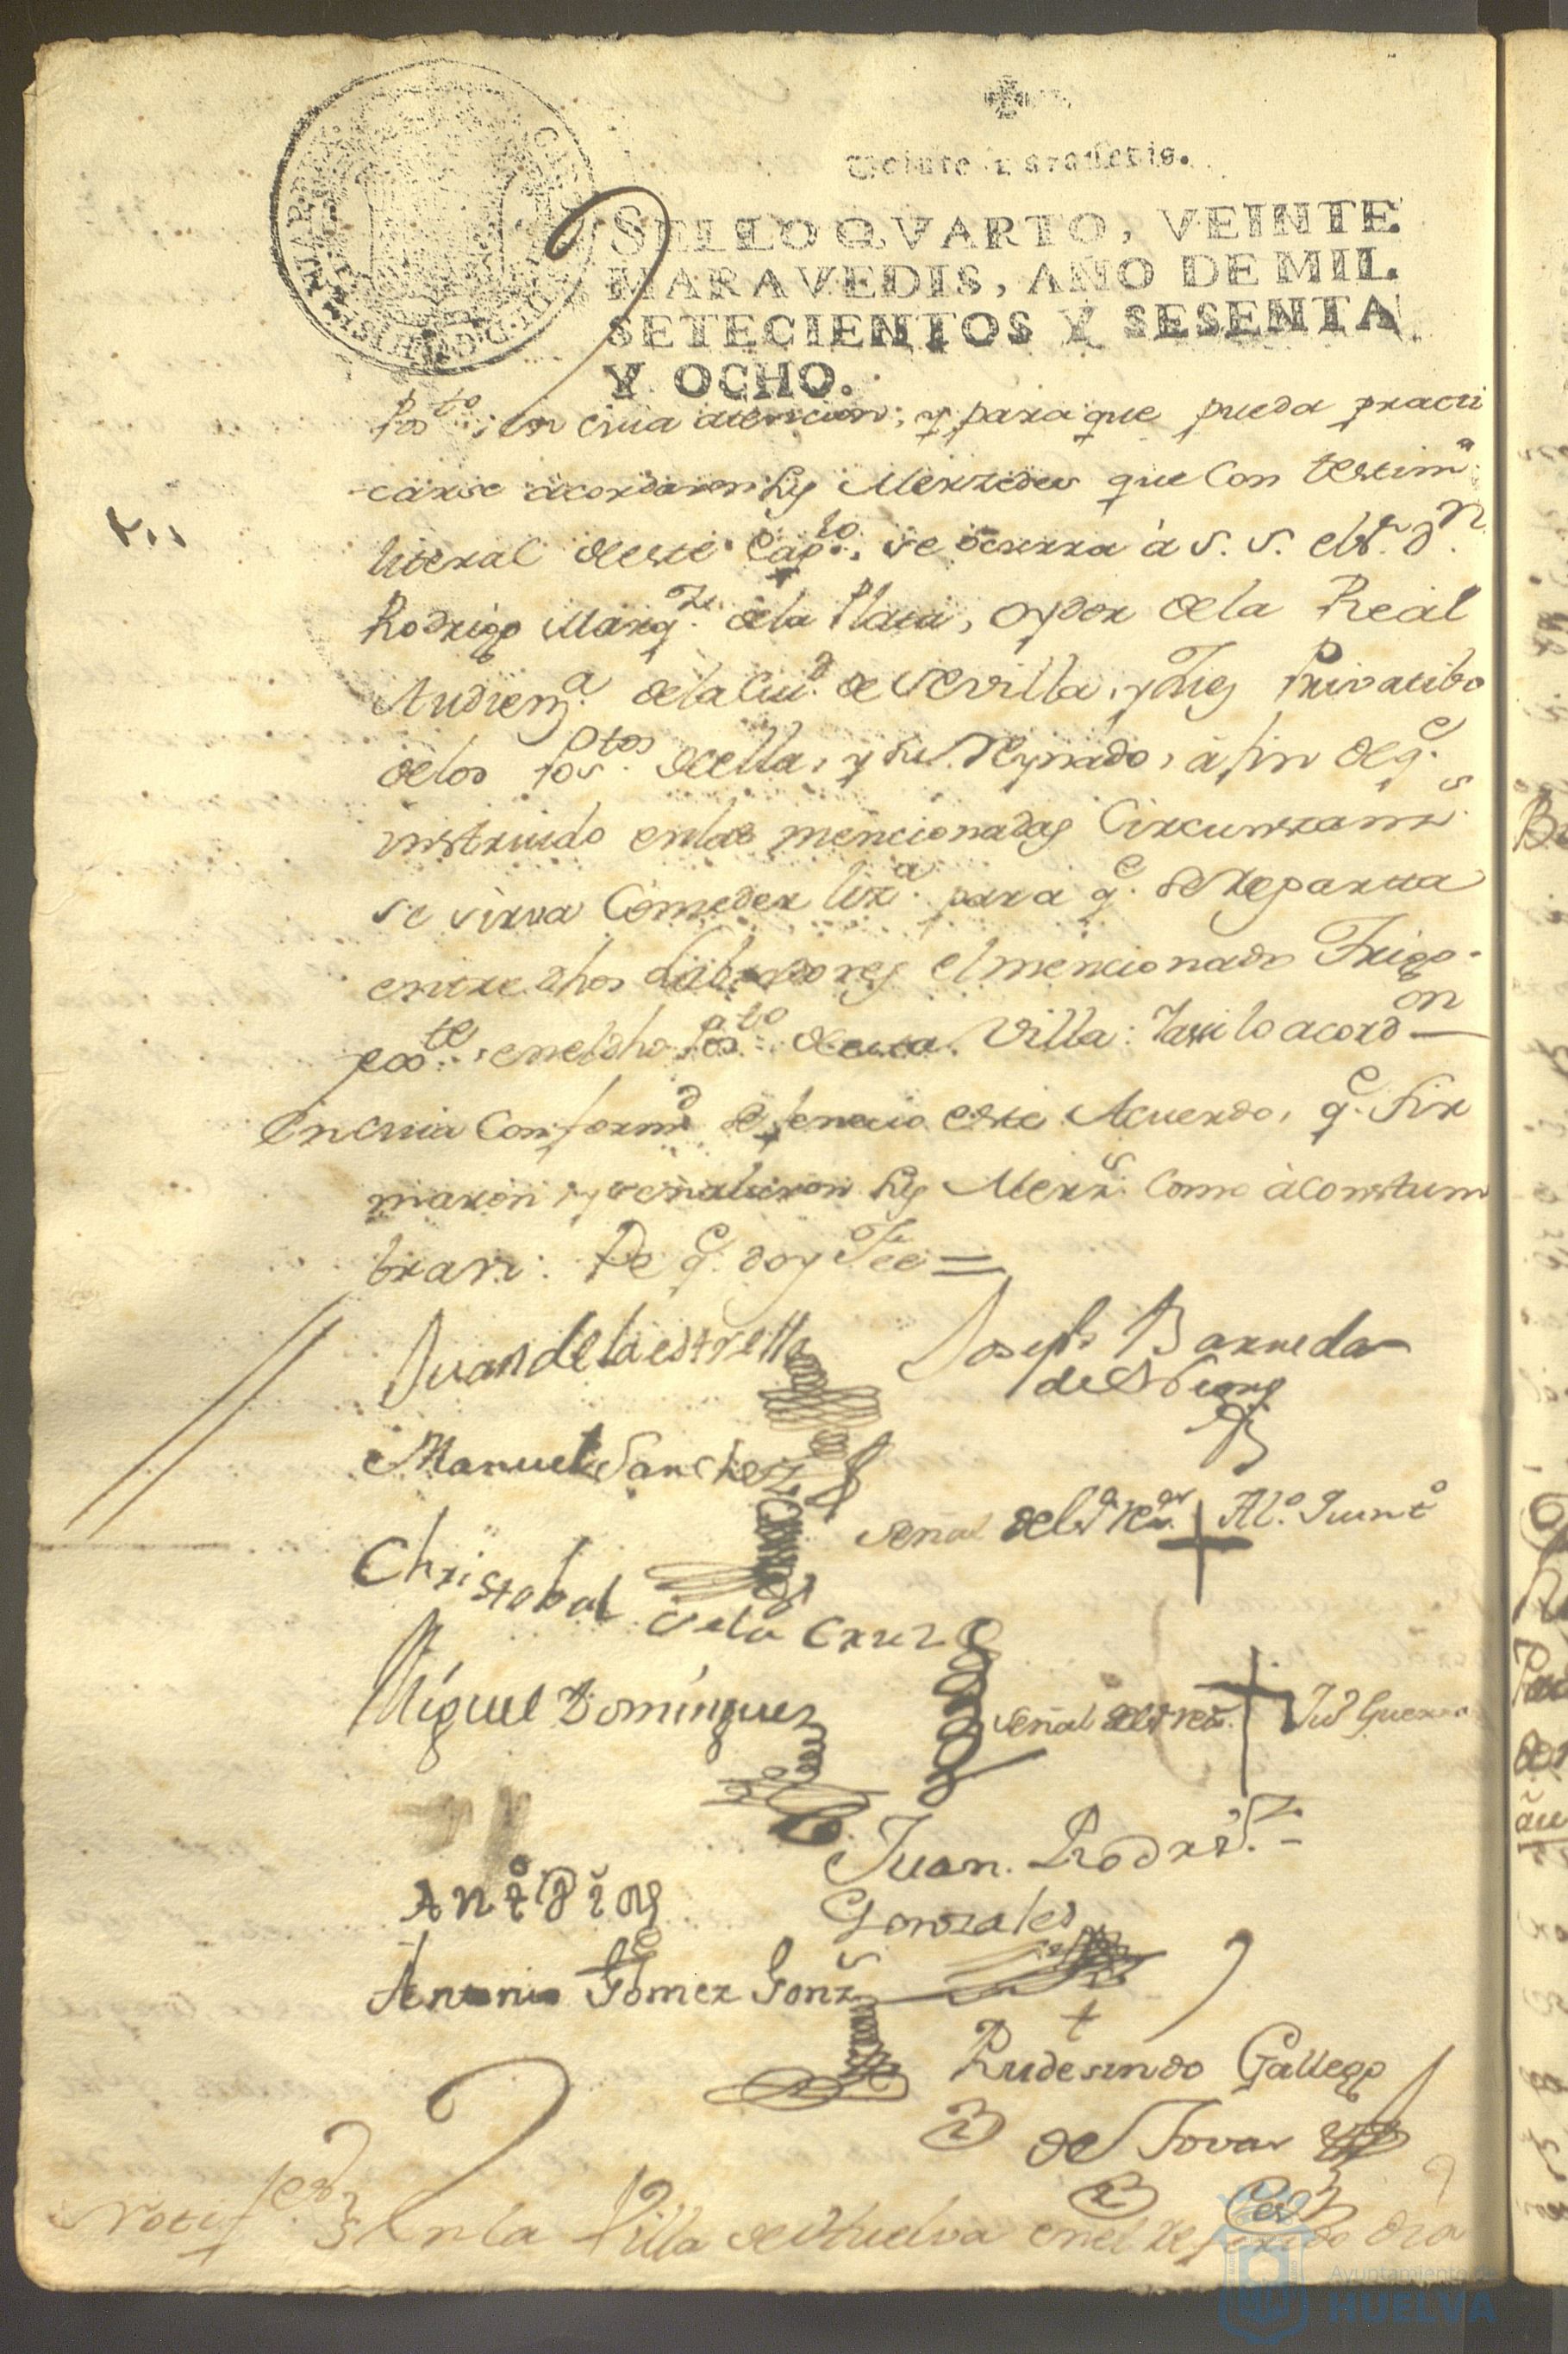 Veinte maravedis.
SELLO QVARTO, VEINTE
MARAVEDIS, AÑO DE MIL
SETECIENTOS Y SESENTA
Y OCHO.
Posto; en cuia atencion; y para que pueda practi
carse acordaron Sus Merzedes que Con testimo
literal de este Capto. se ocurra à S. S. el Sr. Dn.
Rodrigo Marqz. de la Plata, oydor de la Real
Audienza. de la Ciud. de Sevilla, y Juez Privatibo
de los Postos. de ella, y su Reynado, à fin de qe.
instruido en las mencionadas Circunstanzs.
se sirva Conzeder liza. para qe. se reparta
entre dhos Labradores el mencionado Trigo
exte. en el dho Posto. de esta Villa: Y assi lo acordon
En cuia Conformd. se fenecio este Acuerdo, qe. Fir
maron y señalaron Sus Merzs. Como àcostum
bran: De qe. doy Fee =
Juan de la estrella
Joseph Barreda
Manuel Sanchez
Señal del Sr. Rexor. + Alo. Quinto
Christobal de la Cruz
Miguel Dominguez
Señal del Sr. Rexr. + Jud Guerra
Juan Rodrigz.
Gonzales
Anto Dias
Antonio Gomez Gonzs
Rudesindo Gallego
de Tovar
Notif En la Villa de Huelva en el referido dia
Ayuntamiento de
HUELVA